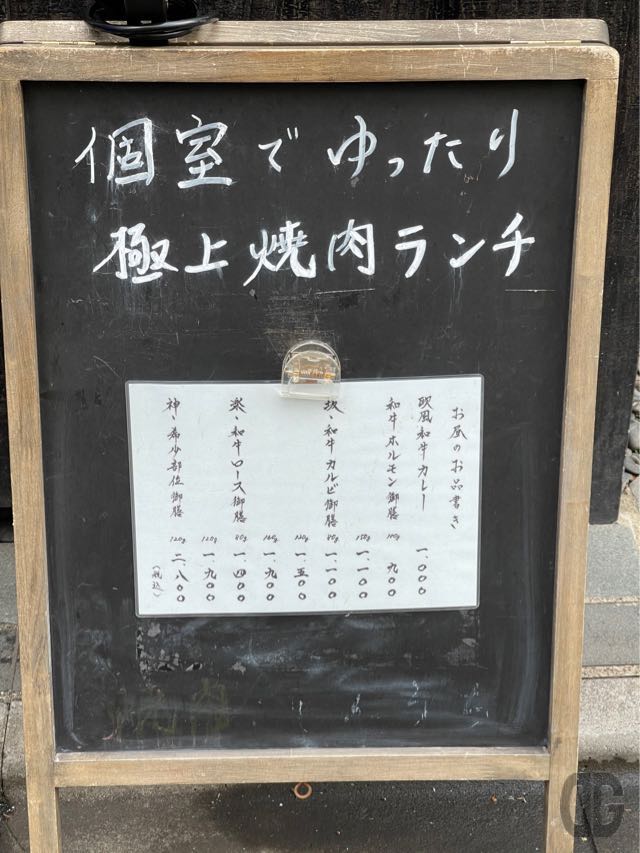 個室でゆったり
極上焼肉ランチ
お昼のお品書き
欧風和牛カレー 一、〇〇〇
和牛ホルモン御膳 100g 九〇〇
150g 一、一〇〇
坂、和牛カルビ御膳 80g 一、一〇〇
120g 一、五〇〇
160g 一、九〇〇
楽、和牛ロース御膳 80g 一、四〇〇
120g 一、九〇〇
神、希少部位御膳 120g 二、八〇〇
(税込)